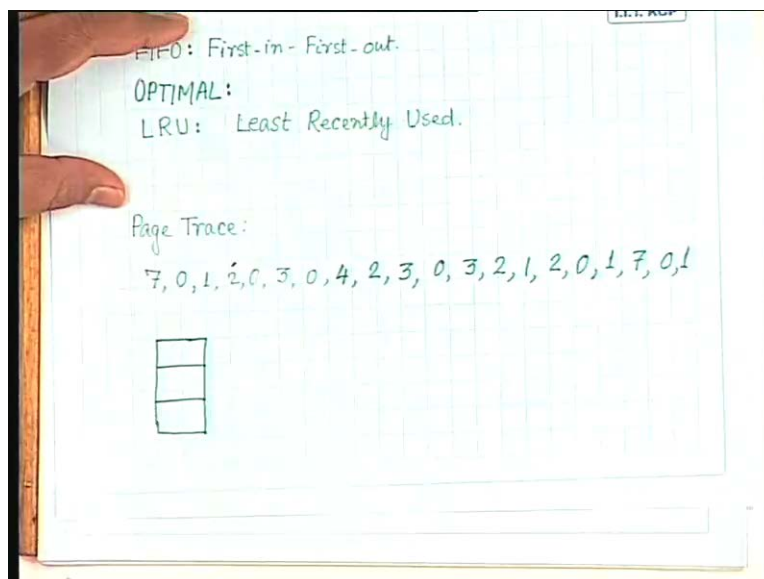 FIFO: First-in-First-out.
OPTIMAL:
LRU: Least Recently Used.
Page Trace:
7, 0, 1, 2, 0, 3, 0, 4, 2, 3, 0, 3, 2, 1, 2, 0, 1, 7, 0, 1